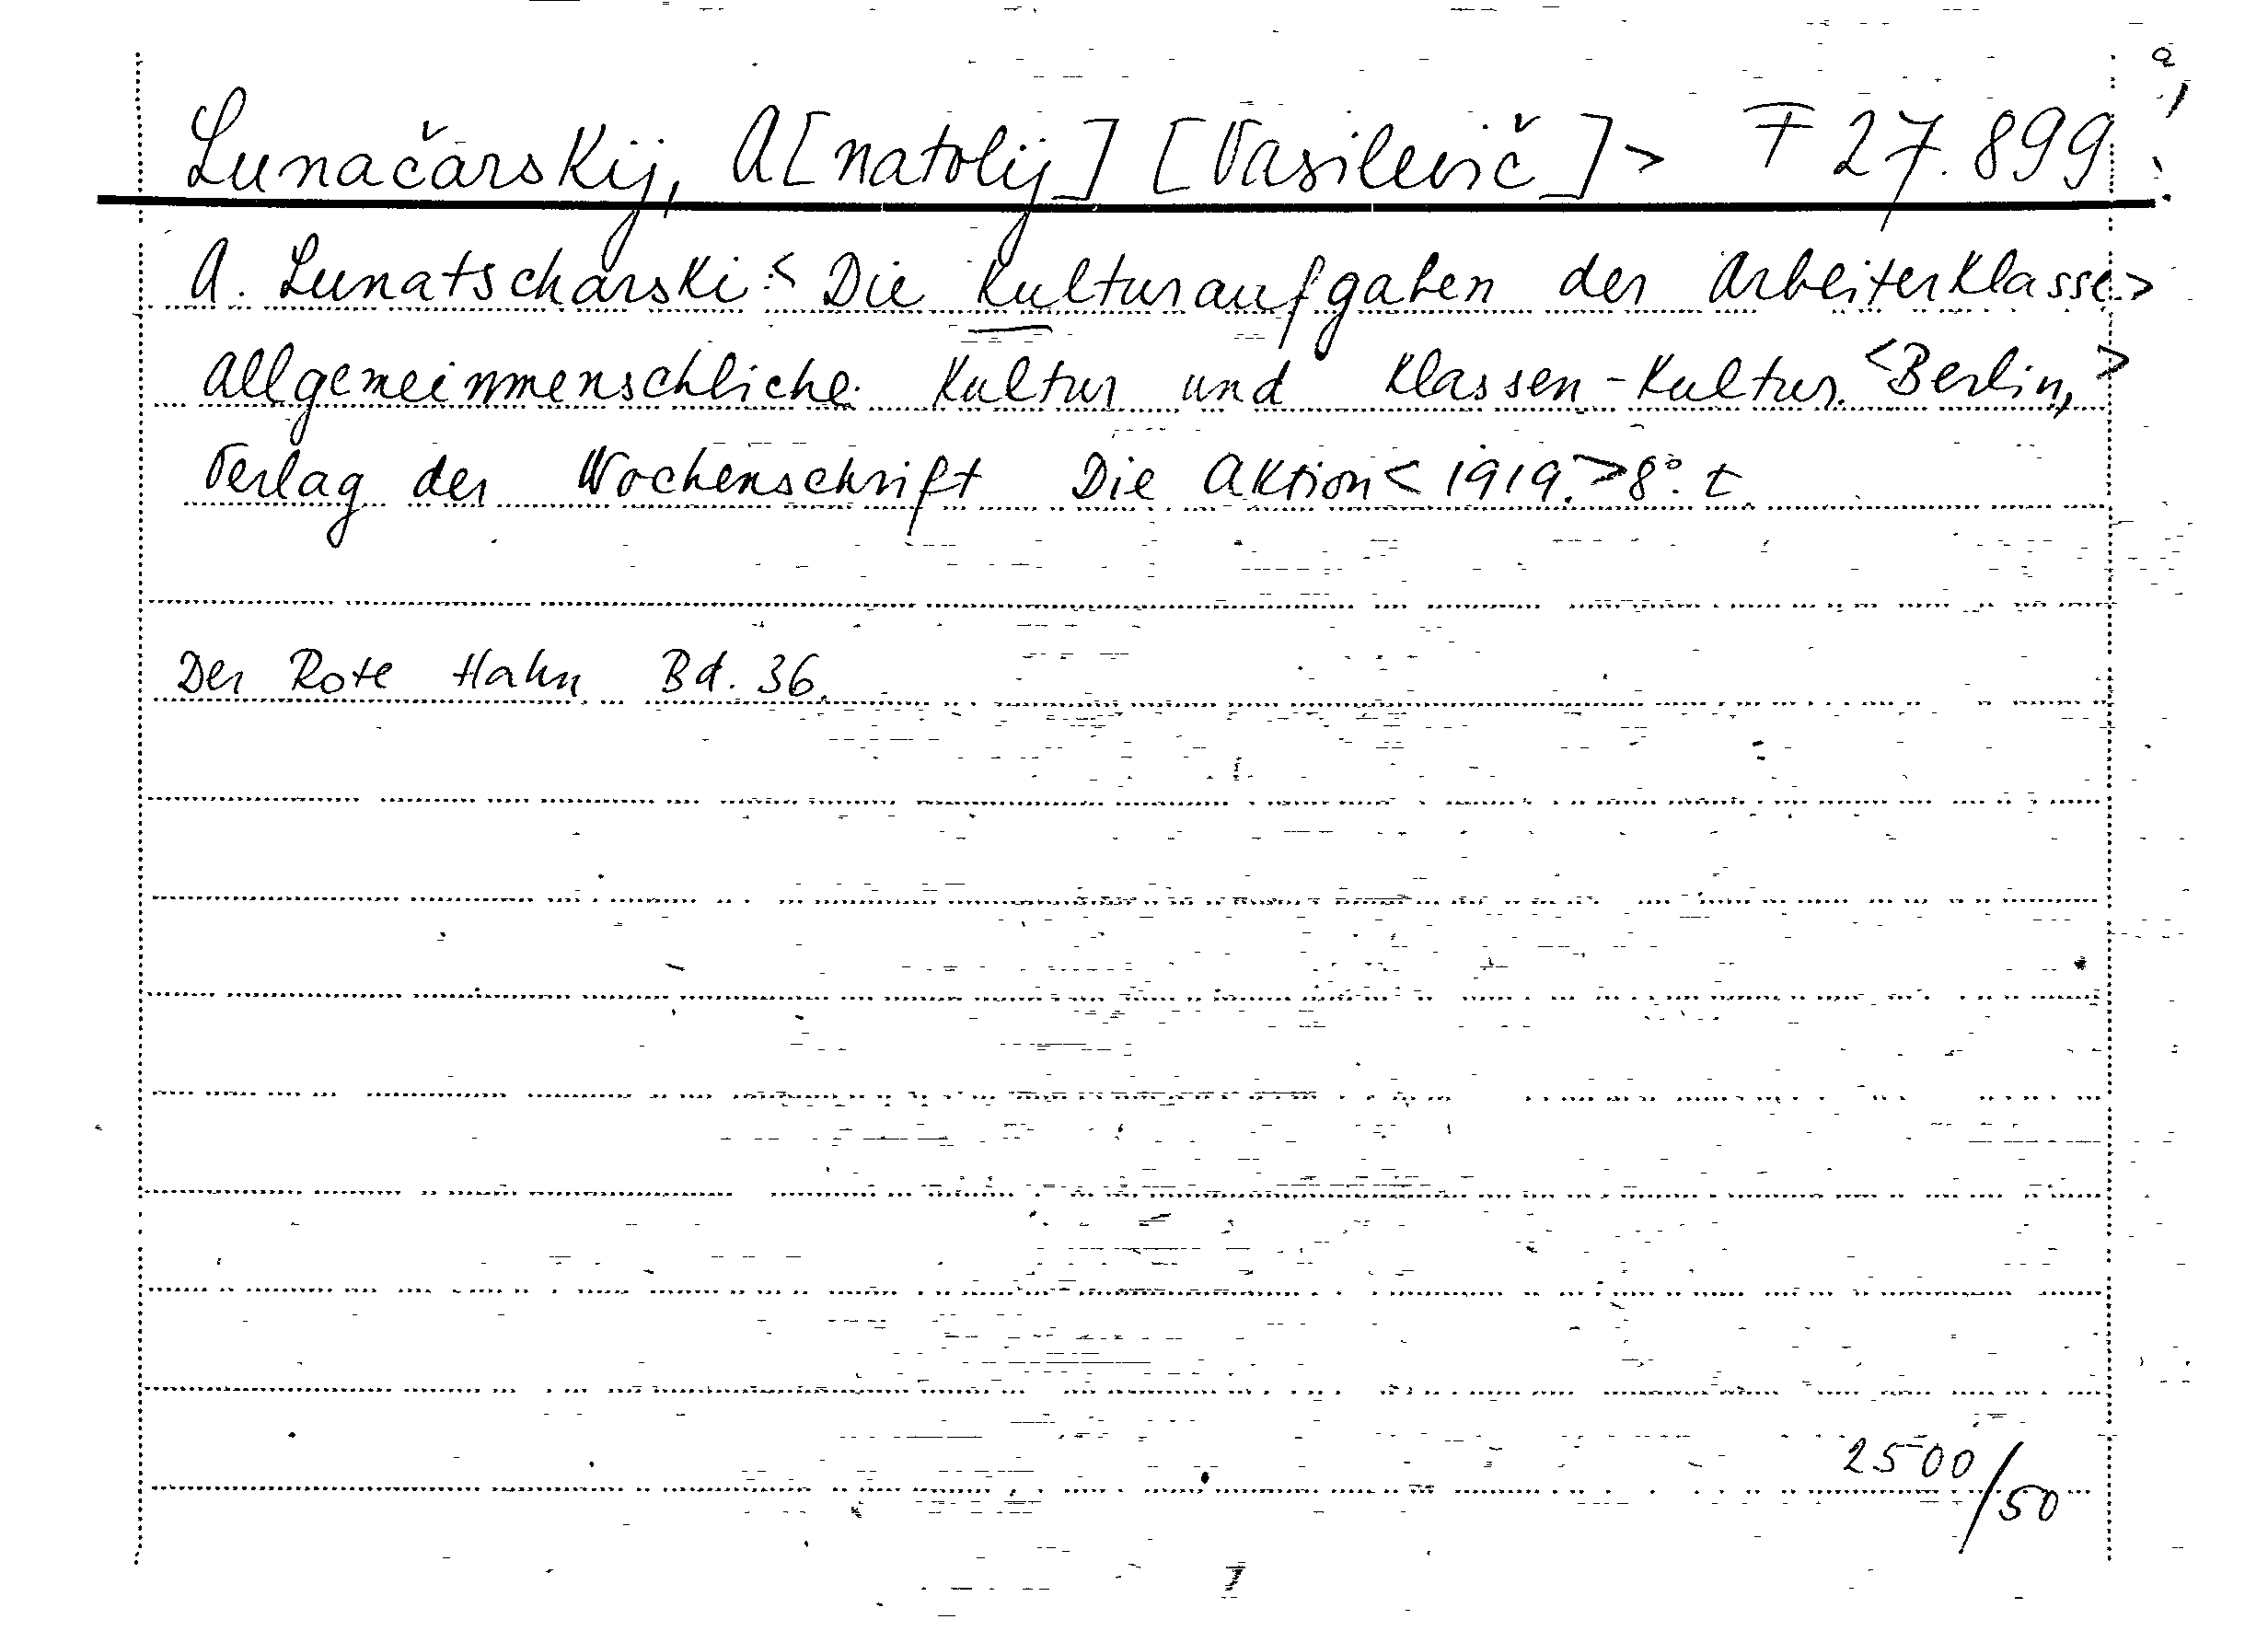 Lunačarskij, A[natolij] [Vasilevič]> F 27.899
A. Lunatscharski:< Die Kulturaufgaben der Arbeiterklasse.>
Allgemeinmenschliche Kultur und Klassen-Kultur. <Berlin,>
Verlag der Wochenschrift Die Aktion< 1919.>8°. t.
Der Rote Hahn Bd. 36.
2500/50